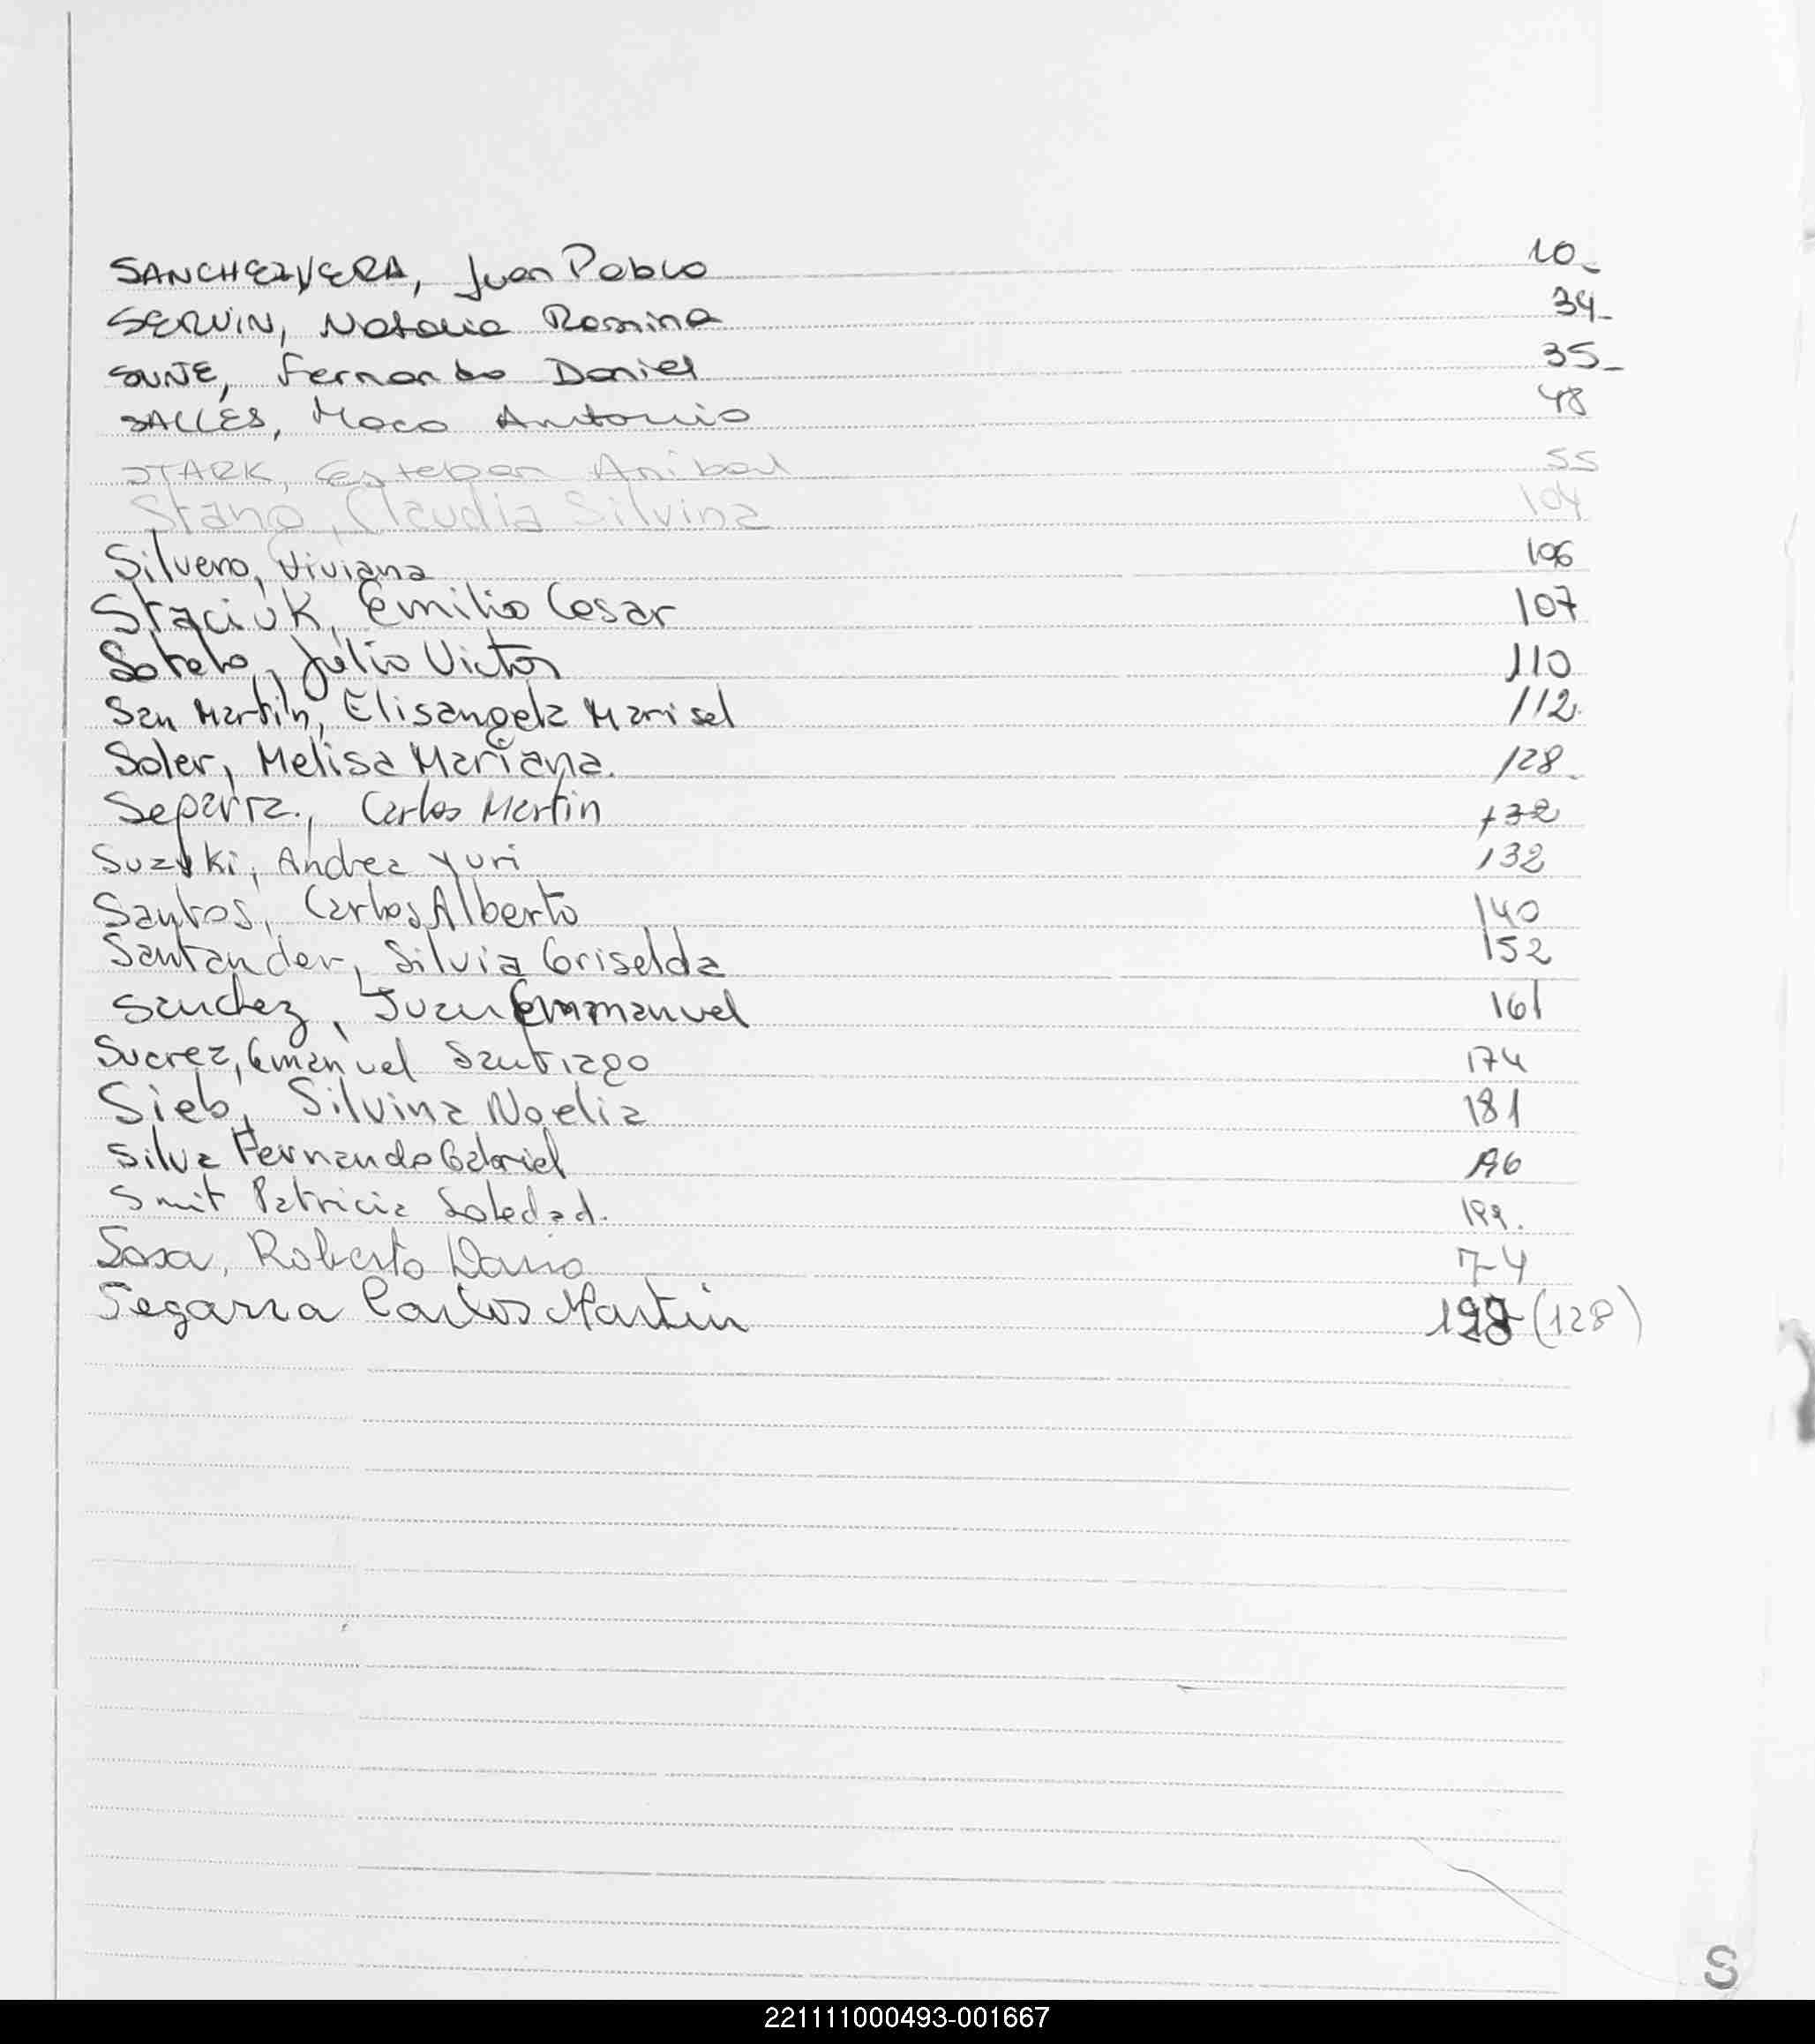 SANCHEZ VERA, Juan Pablo 10-
SERVIN, Natalia Romina 34-
SUNJE, Fernando Daniel 35-
SALLES, Maco Antonio 48
STARK, Esteban Anibal 55
Stano, Claudia Silvina 104
Silvero, Viviana 106
Staciuk, Emilio Cesar 107
Sotelo, Julio Victor 110
San Martin, Elisangela Marisel 112.
Soler, Melisa Mariana. 128
Segarra., Carlos Martin 132
Suzuki, Andrea Yuri 132
Santos, Carlos Alberto 140
Santander, Silvia Griselda 152
Sanchez, Juan Emmanuel 161
Suarez, Emanuel Santiago 174
Sieb, Silvina Noelia 181
Silva Fernando Gabriel
Smit Patricia Soledad.
Sosa, Roberto Dario 74
Segarra Carlos Martin (128)
S
221111000493-001667